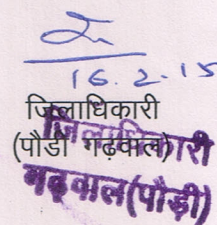 16.2.15
जिलाधिकारी
(पौडी गढ़वाल)
जिलाधिकारी
गढ़वाल(पौड़ी)